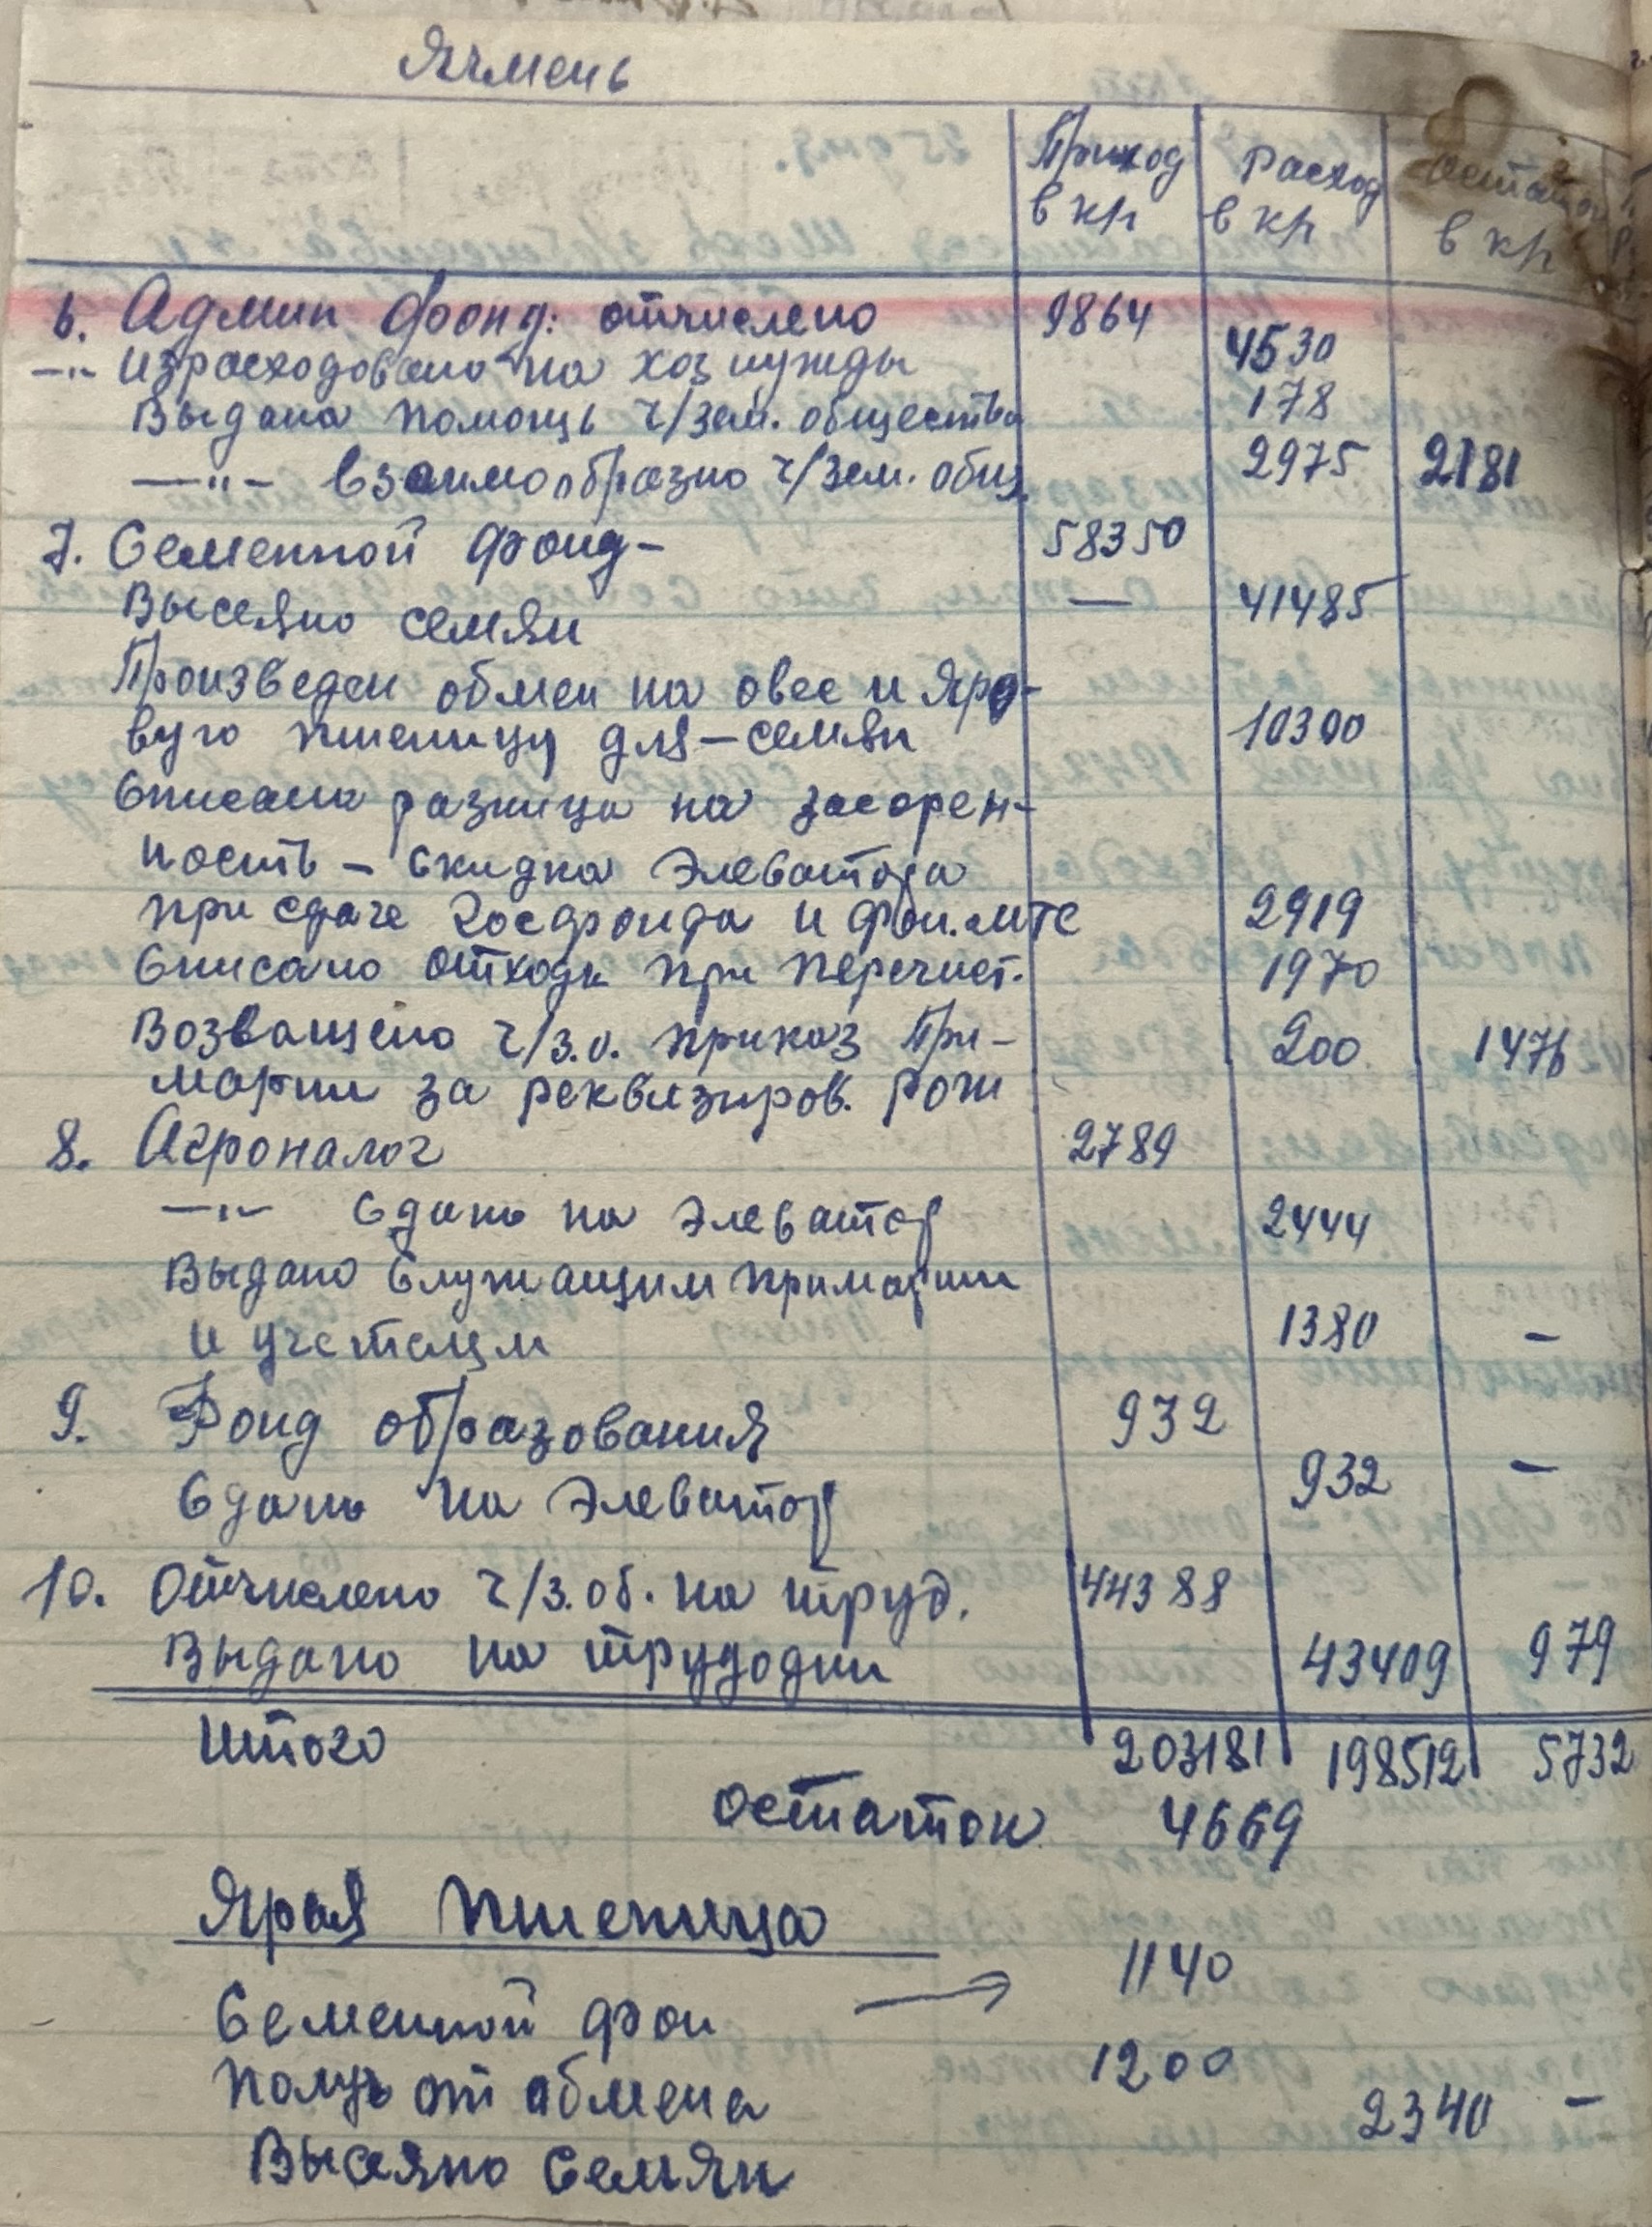 Ячмень
Приход в кр Расход в кр Остаток в кр
6. Админ фонд: отчислено 9864
—"— Израсходовано на хоз нужды 4530
Выдана помощь ч/зем. общества 178
—"— взаимообразно ч/зем. общ. 2975 2181
7. Семенной фонд— 58350
Высеяно семян — 41485
Произведен обмен на овес и яро-
вую пшеницу для—семян 10300
Списана разница на засорен-
ность — скидка элеватора
при сдаче Госфонда и фон. МТС 2919
Списано отходы при перечист. 1970
Возващено ч/з.о. приказ При- 200 1476
марии за реквизиров. рож
8. Агроналог 2789
—"— Сдань на элеватор 2444
Выдано служащим примарии
и учетелям 1380 —
9. Фонд образования 932
Сдань на элеватор 932 —
10. Отчислено ч/з.об. на труд. 44388
Выдано на трудодни 43409 979
Итого 203181 198512 5732
Остаток 4669
Ярая пшеница
Семенной фон → 1140
Получ от обмена 1200
Высеяно семян 2340 —